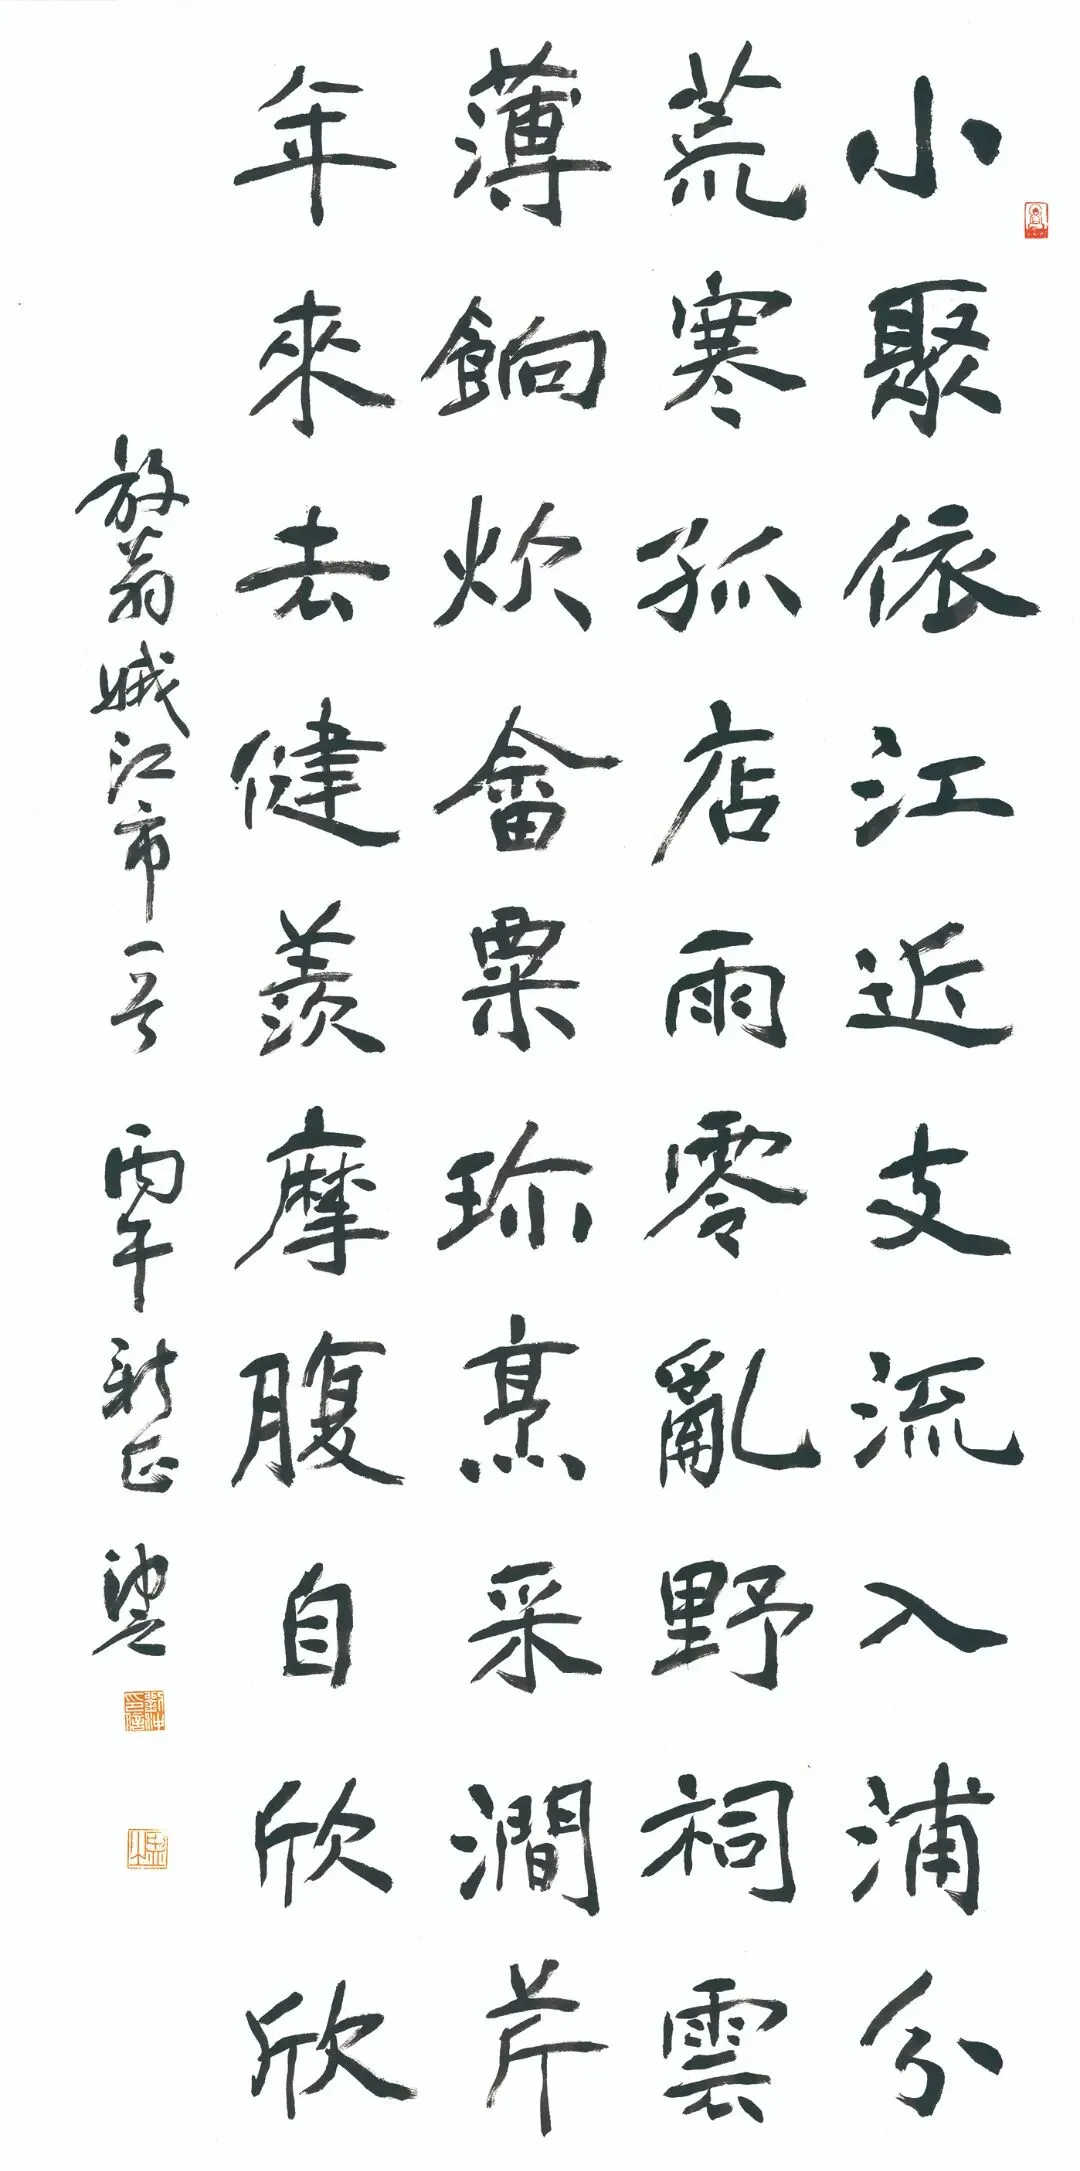 小聚依江近支流入浦分
荒寒孤店雨零亂野祠雲
薄餉炊畬粟珍烹采澗芹
年來去健羨摩腹自欣欣
放翁娥江市一首 丙午新正